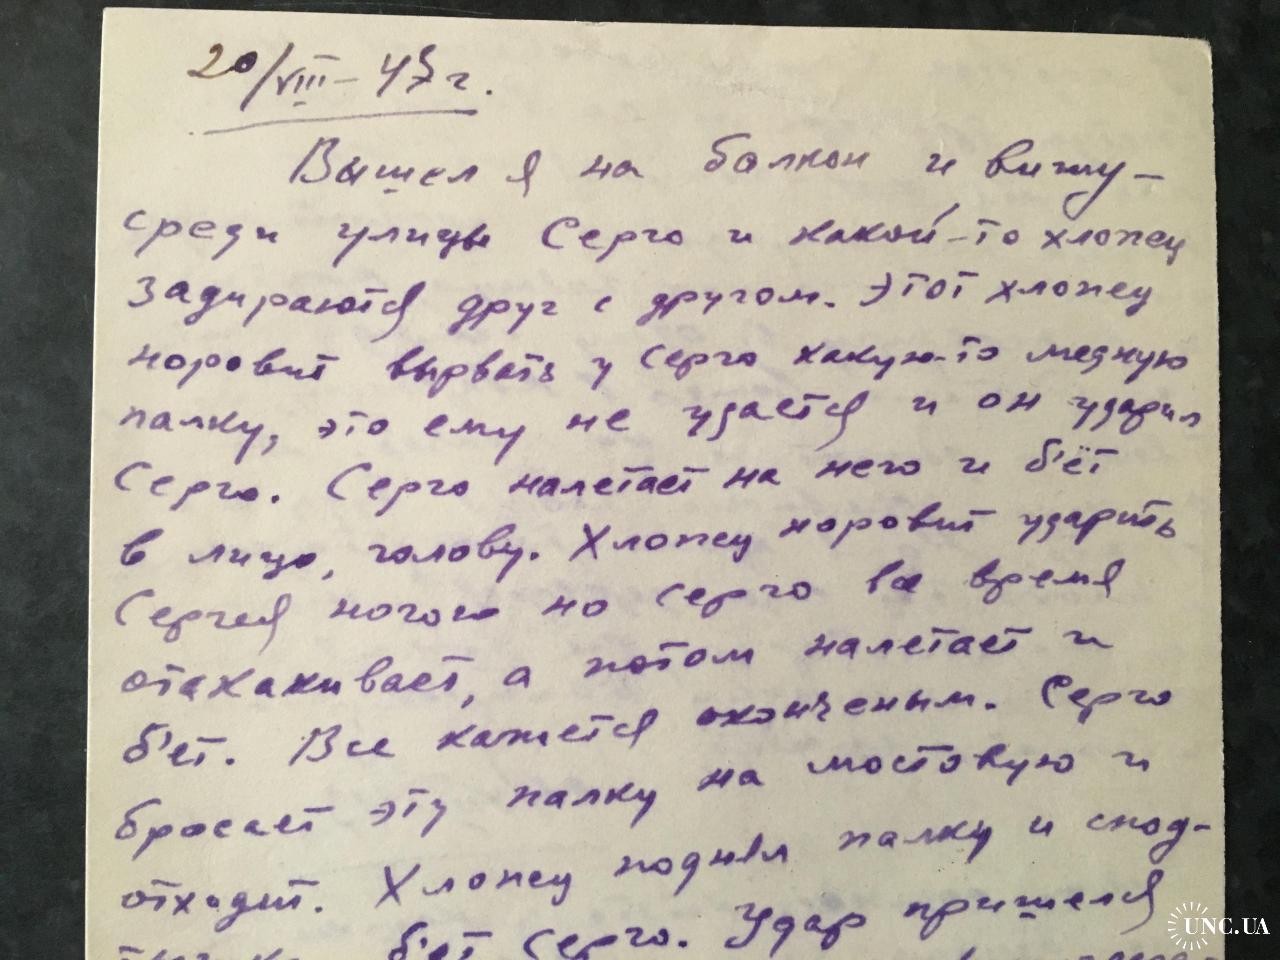 20/VIII – 45 г.
Вышел я на балкон и вижу –
среди улицы Серго и какой-то хлопец
задираются друг с другом. Этот хлопец
норовит вырвать у Серго какую-то медную
палку, это ему не удается и он ударил
Серго. Серго налетает на него и б'ёт
в лицо, голову. Хлопец норовит ударить
Сергея ногою но Серго все время
отскакивает, а потом налетает и
б'ет. Все кажется оконченым. Серго
бросает эту палку на мостовую и
отходит. Хлопец поднял палку и спод-
б'ет Серго. Удар пришелся
UNC.UA